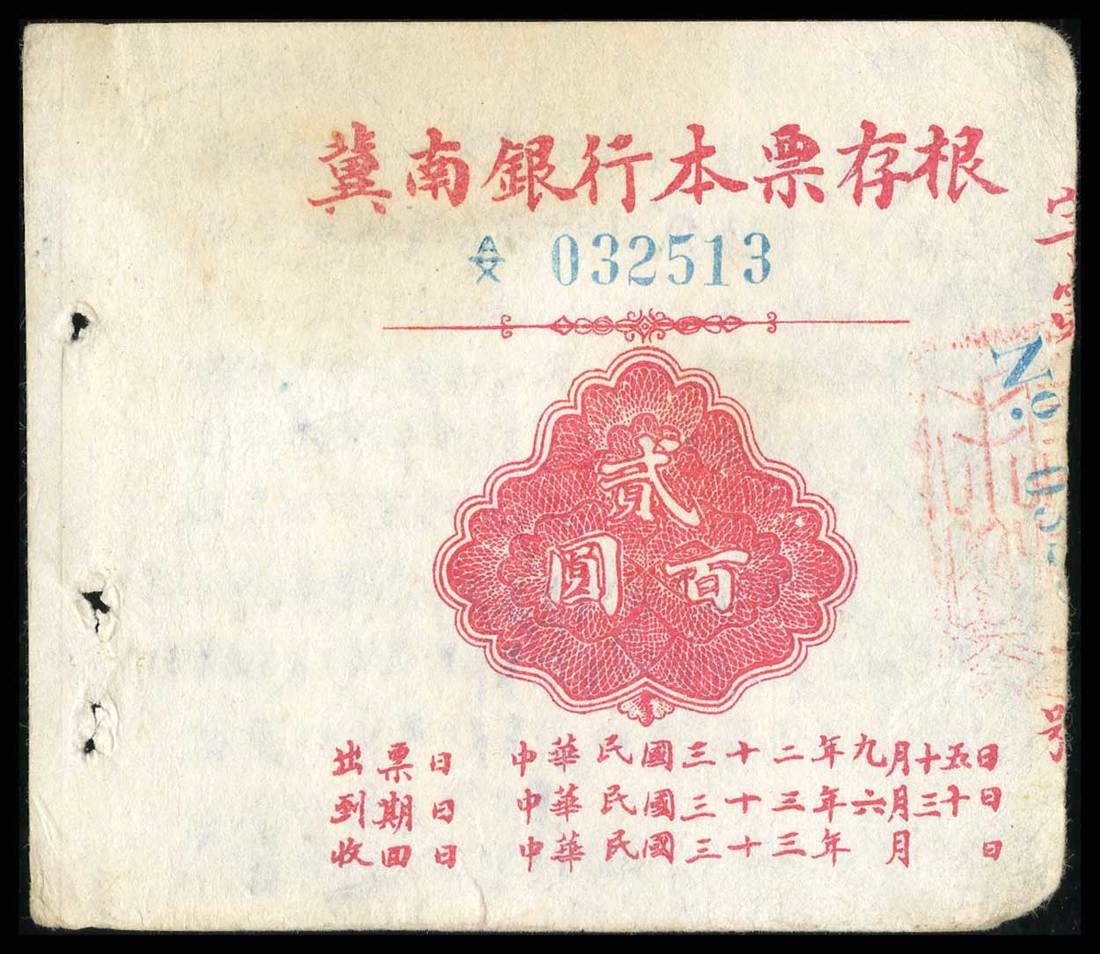 冀南銀行本票存根
032513
貳
百圓
出票日 中華民國三十二年九月十五日
到期日 中華民國三十三年六月三十日
收回日 中華民國三十三年 月 日
字第
No. 0
號